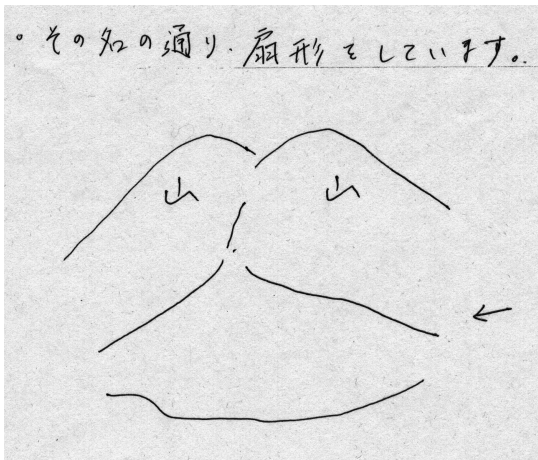 。その名の通り、扇形をしています。
山 山